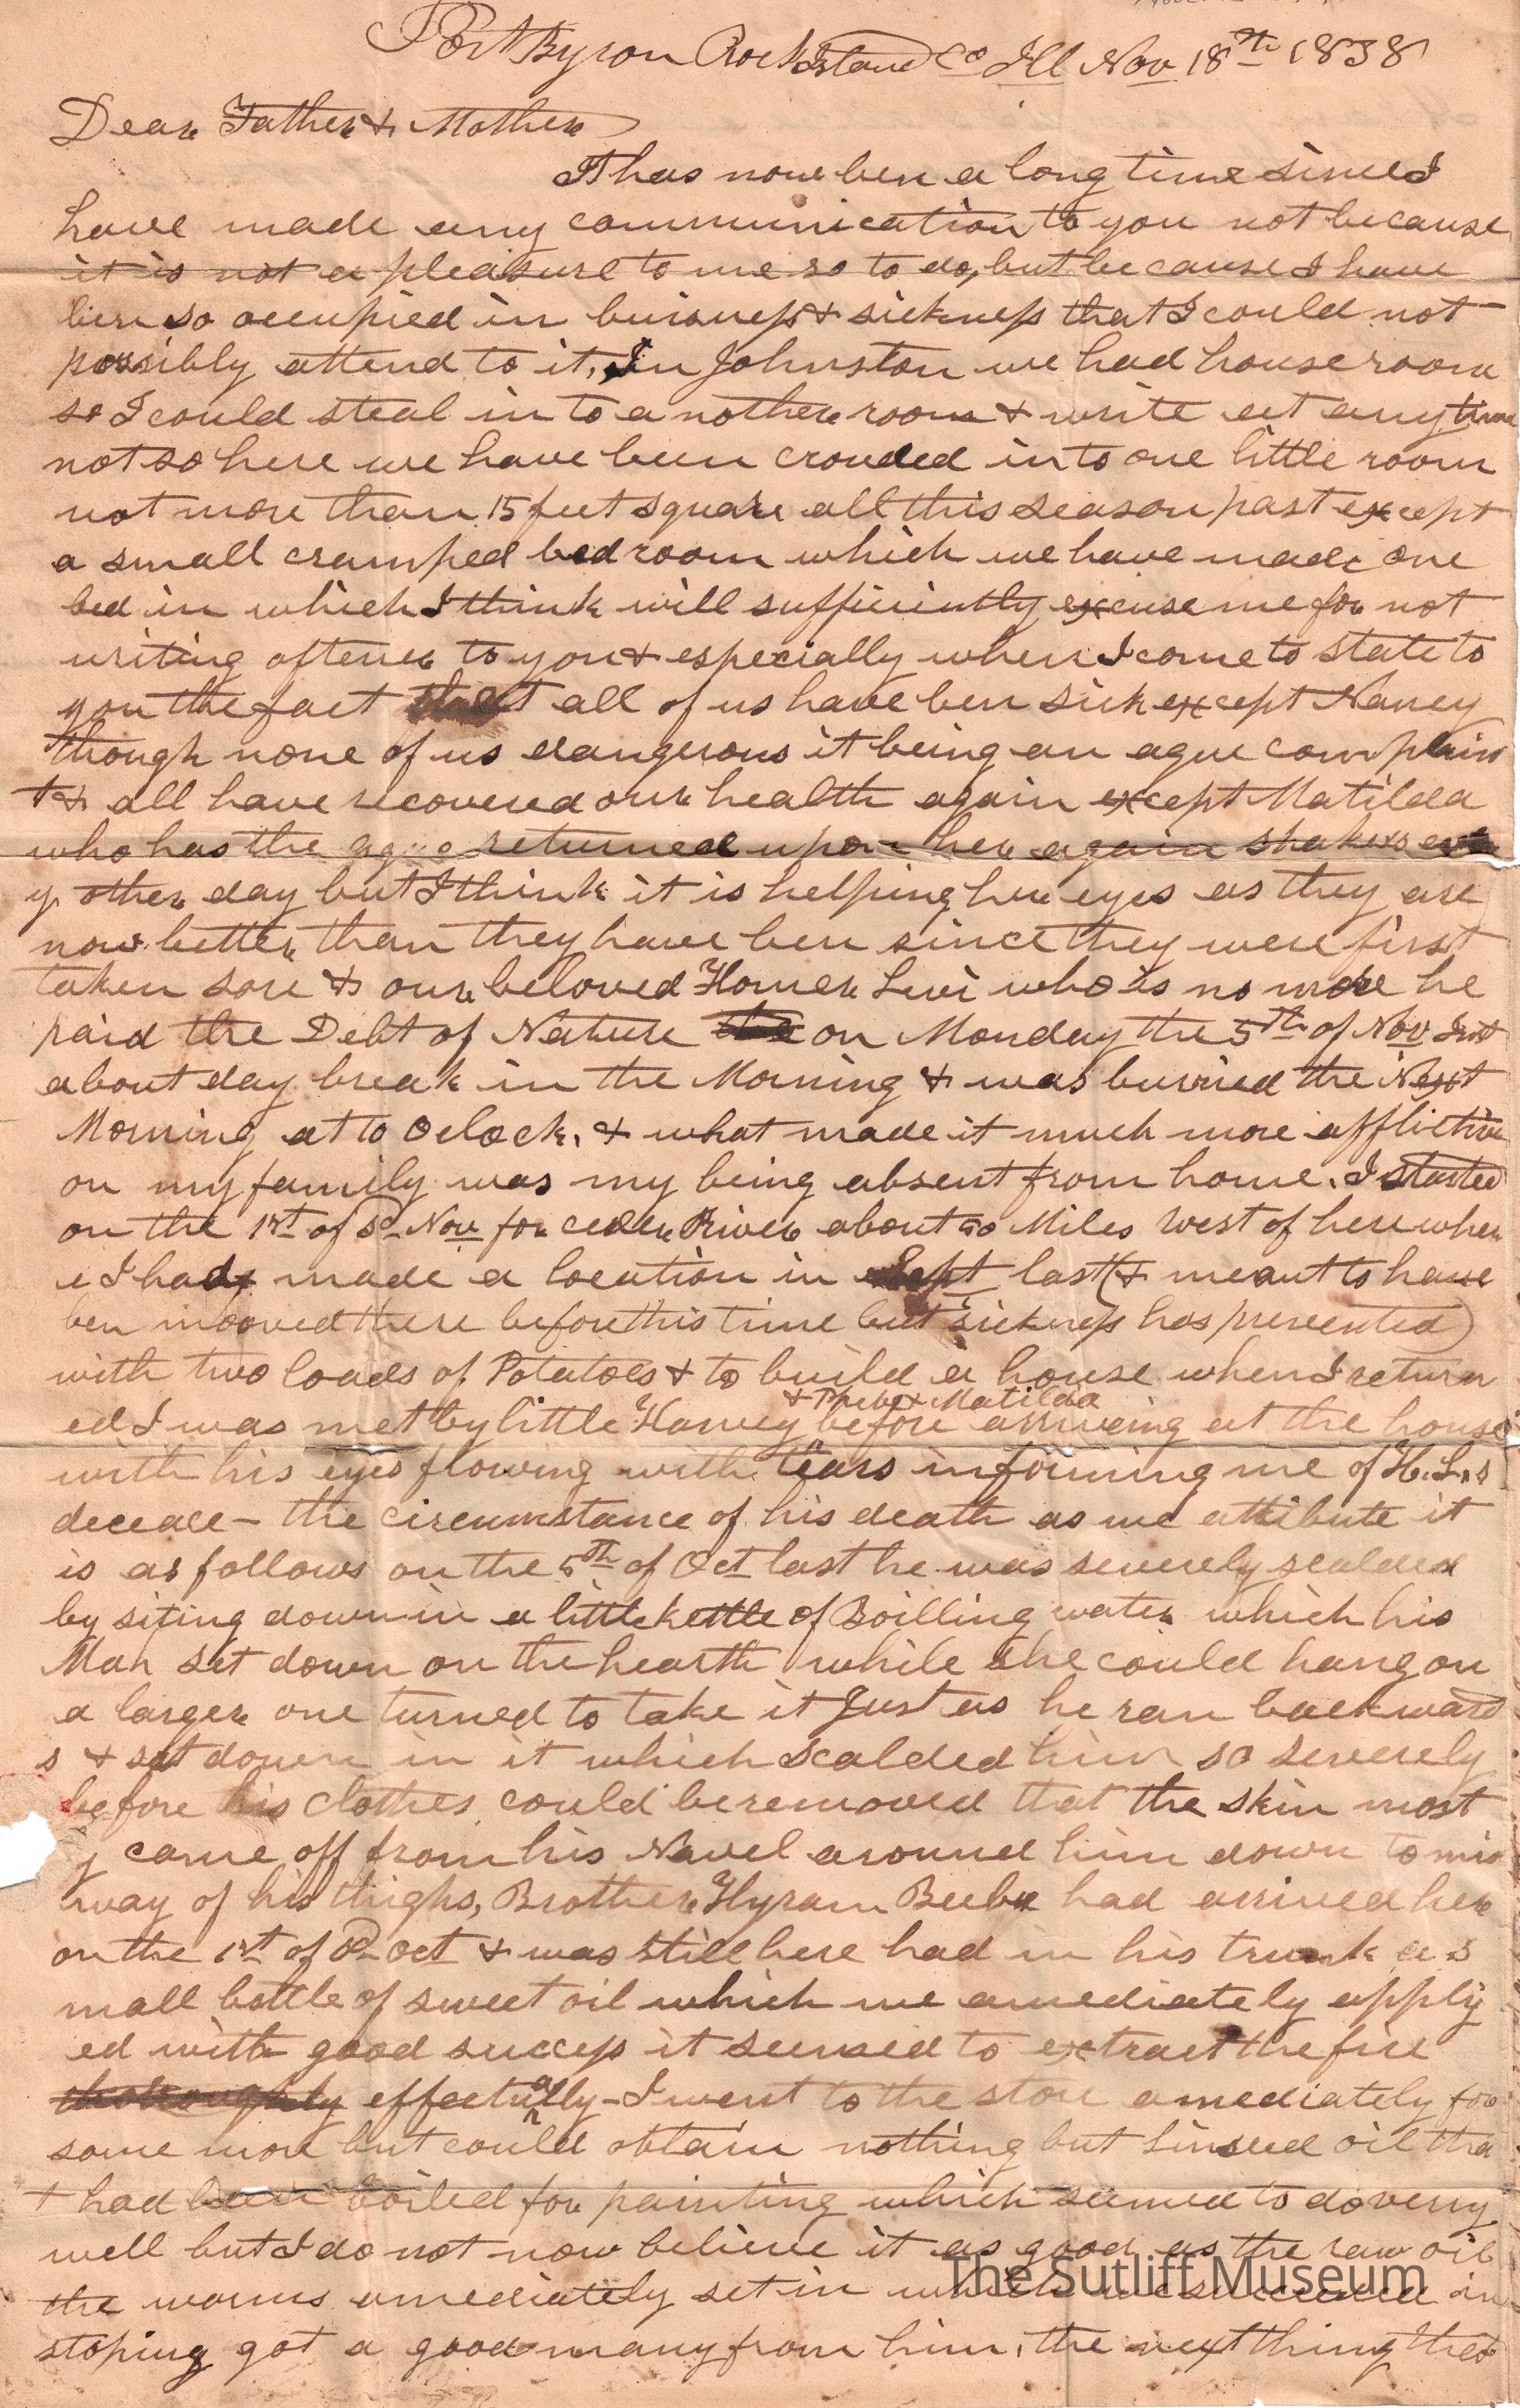 Port Byron Rock Island Co Ill Nov 18th 1838
Dear Father & Mother
It has now ben a long time since I
have made any communication to you not because
it is not a pleasure to me so to do, but because I have
ben so occupied in buisness & sickness that I could not
possibly attend to it, In Johnston we had house room
so I could steal in to a nother room & write at any time
not so here we have been crouded into one little room
not more than 15 feet square all this season past except
a small cramped bedroom which we have made one
bed in which I think will sufficiently excuse me for not
writing oftener to you & especially when I come to state to
you the fact that all of us have ben sick except Nancy
though none of us dangerous it being an ague complain
t & all have recovered our health again except Matilda
who has the ague returned upon her again shakes ever
y other day but I think it is helping her eyes as they are
now better than they have ben since they were first
taken sore & our beloved Homer Levi who is no more he
paid the Debt of Nature on Monday the 5th of Nov Inst
about day break in the Morning & was burried the Next
Morning at 10 Oclock, & what made it much more afflictive
on my family was my being absent from home. I started
on the 1st of sd Nov for ceder River about Miles west of here wher
e I had made a location in Sept last (& meant to have
ben mooved there before this time but sickness has prevented)
with two loads of Potatoes & to build a house when I return
& Phebe & Matilda
ed I was met by little Harvey before arriveing at the house
with his eyes flowing with tears informing me of H. L,s
decease - the circumstance of his death as we attibute it
is as follows on the 5th of Oct last he was severely scalded
by siting down in a little kettle of Boilling water which his
Mah set down on the hearth while she could hang on
a larger one turned to take it Just as he ran backward
s & sat down in it which scalded him so severely
before his clothes could be removed that the skin most
y came off from his Navel around him down to mid
way of his thighs, Brother Hyram Beebe had arrived here
on the 1st of sd Oct & was still here had in his trunk a s
mall bottle of sweet oil which we amediately apply
ed with good success it seemed to extract the fire
thoroughly effectually - I went to the store amediately for
some more but could obtain nothing but Linseed oil tha
t had been boiled for painting which seemed to do verry
well but I do not now believe it as good as the raw oil
the worms amediately set in which we succeeded in
stoping got a good many from him, the next thing that
The Sutliff Museum